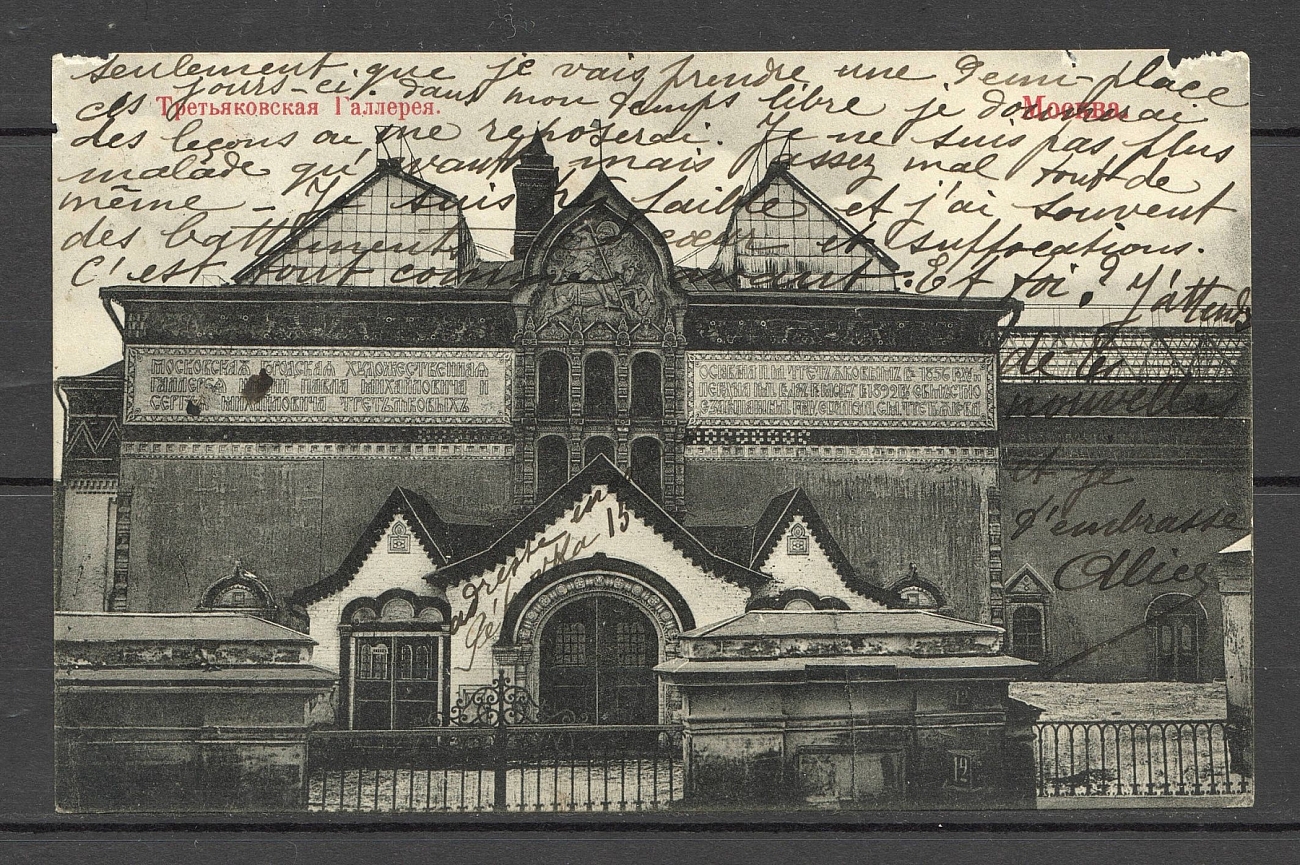 seulement que je vais prendre une Demi-place
ces jours-ci. dans mon temps libre je donnerai
Третьяковская Галлерея.
Москва.
des leçons ou me reposerai. Je ne suis pas plus
malade qu'avant, mais assez mal tout de
même - Je suis faible et j'ai souvent
des battements cœur et suffocations.
C'est tout comme avant. Et toi? J'attends
de tes
nouvelles
et je
t'embrasse
Alice
МОСКОВСКАЯ ГОРОДСКАЯ ХУДОЖЕСТВЕННАЯ
ГАЛЛЕРЕЯ ПАВЛА МИХАЙЛОВИЧА И
СЕРГѢЯ МИХАЙЛОВИЧА ТРЕТЬЯКОВЫХЪ
ОСНОВАНА П.М. ТРЕТЬЯКОВЫМЪ ВЪ 1856 ГОДУ
1892
adresse en
15
12